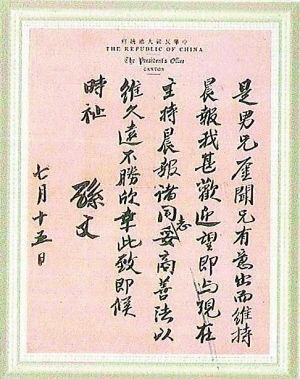 中華民國大總統府
THE REPUBLIC OF CHINA
The President's Office
CANTON
是男兄鑒聞兄有意出而維持
晨報我甚歡迎望即與現在
主持晨報諸同志妥商善法以
維久遠不勝欣幸此致即候
時祉
孫文
七月十五日